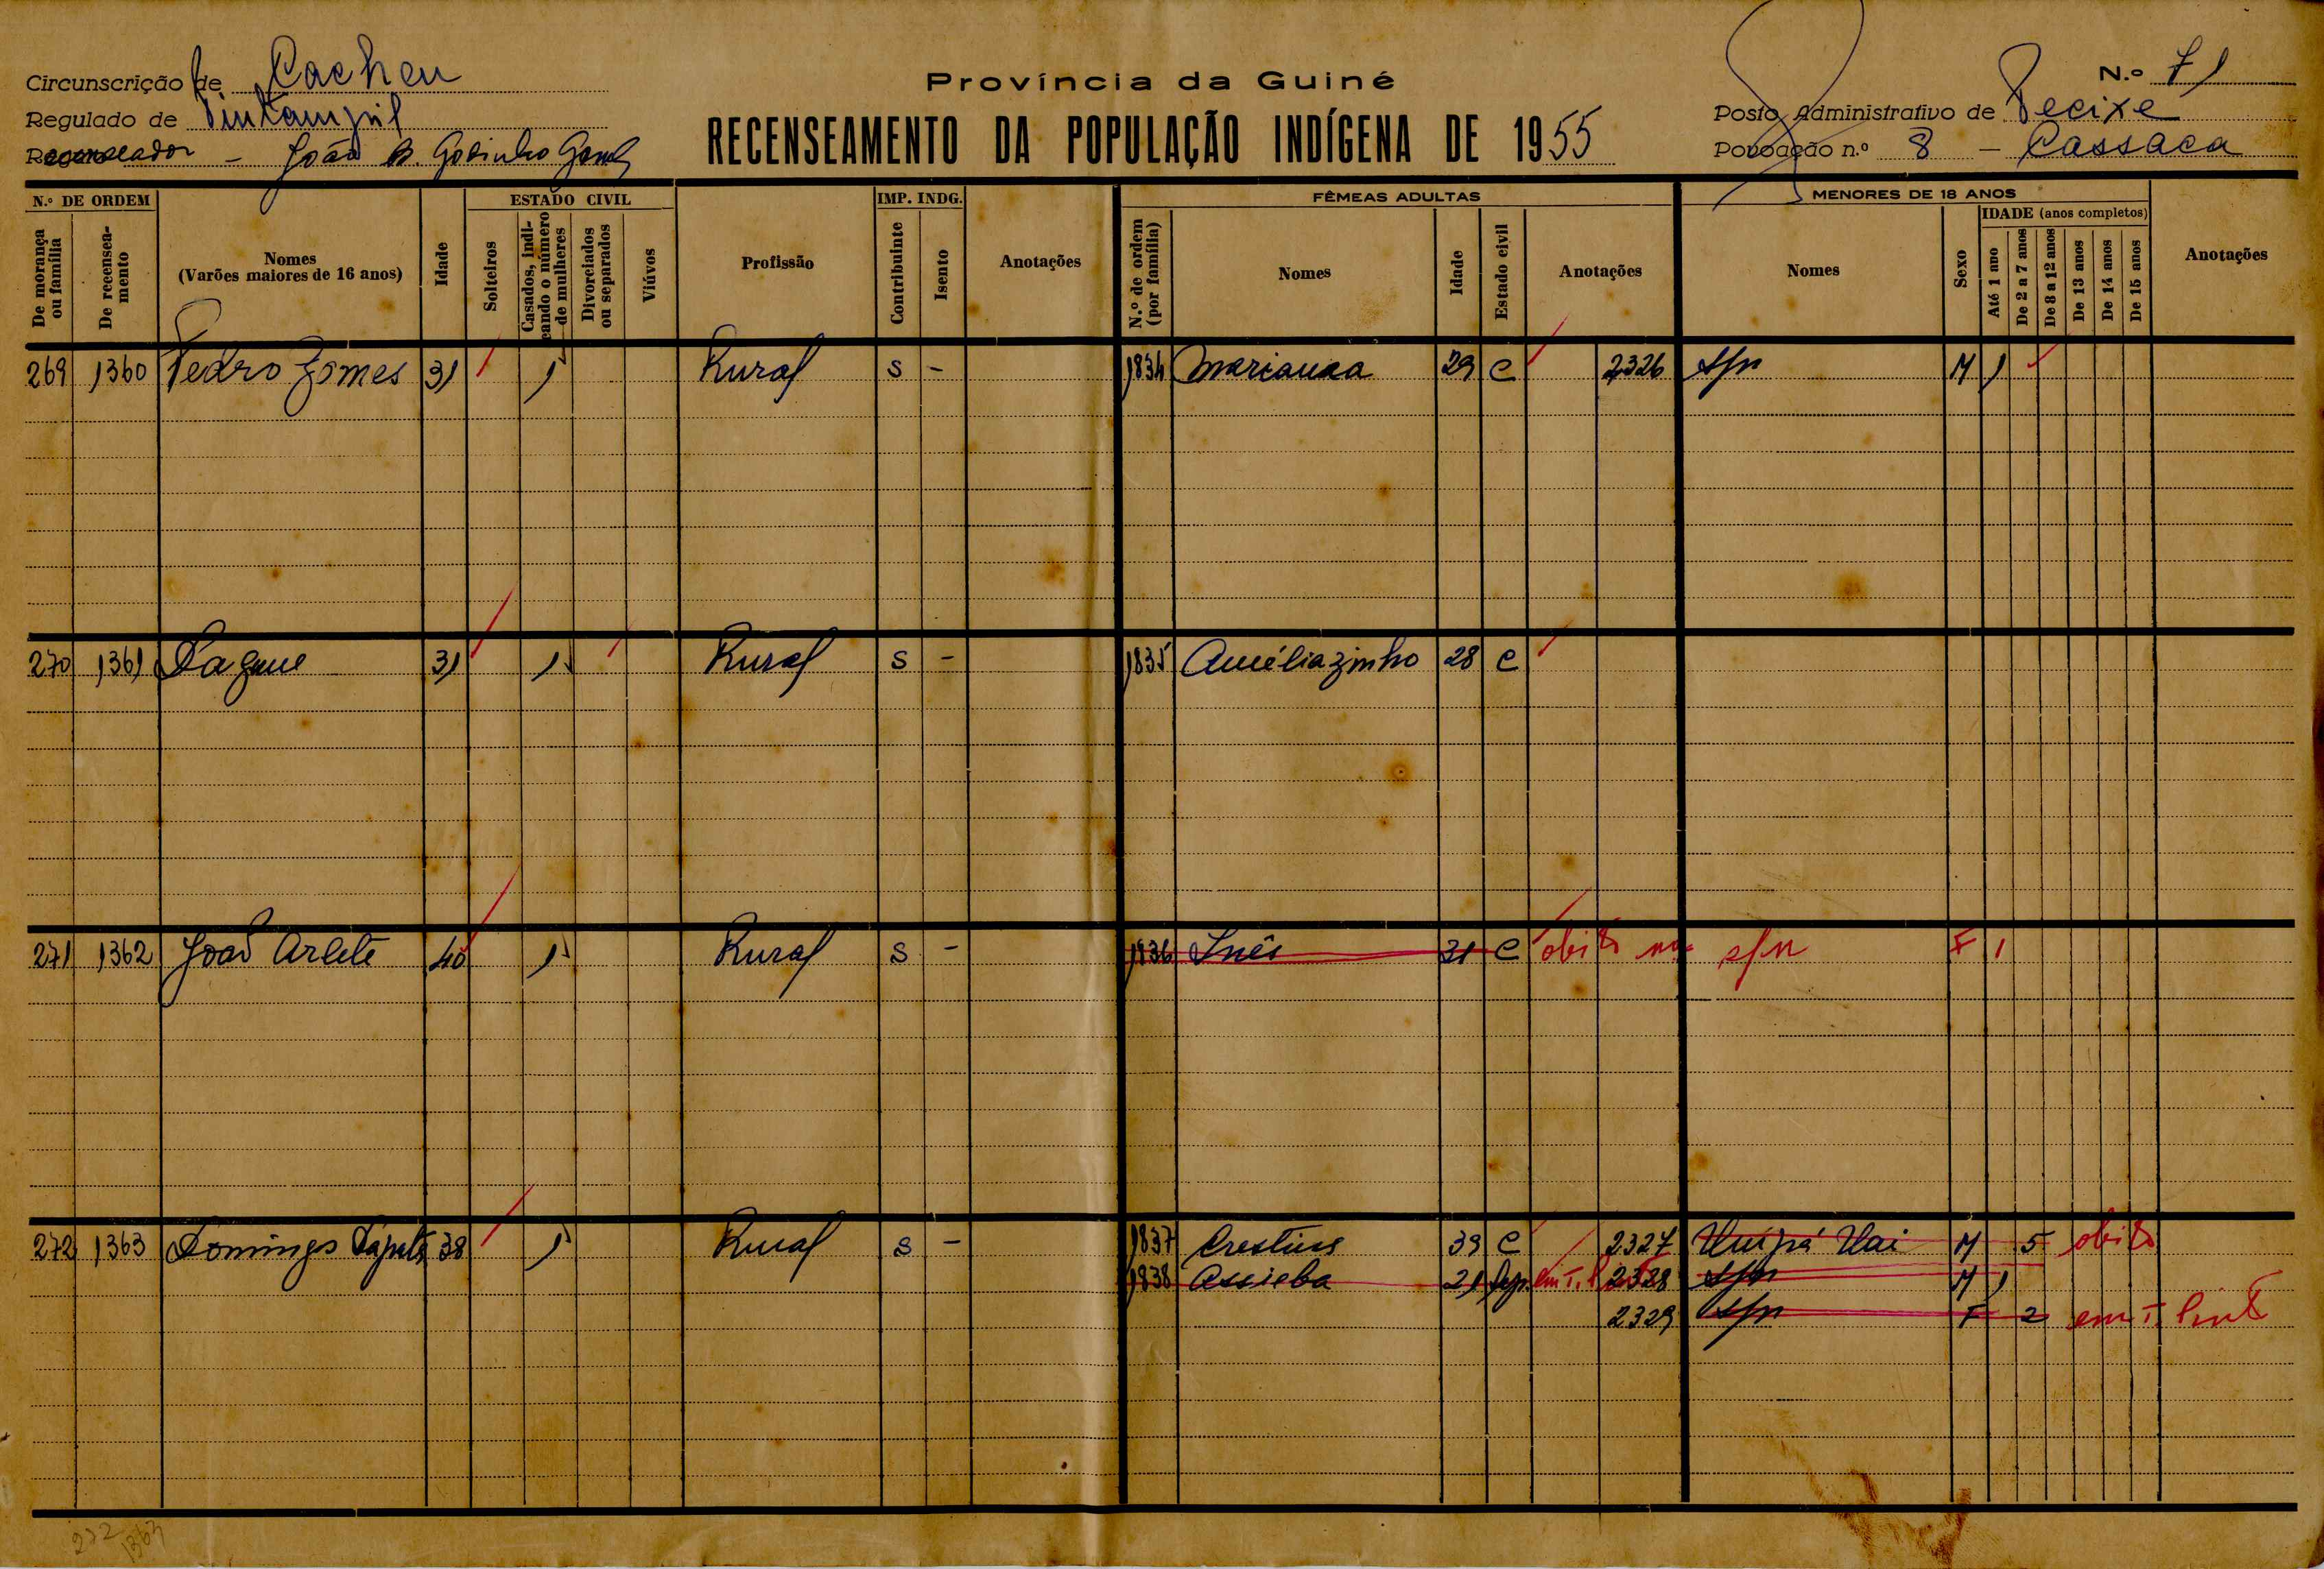 Circunscrição de Cacheu
Regulado de
Recenseador - João B. Godinho Gomes
Província da Guiné
RECENSEAMENTO DA POPULAÇÃO INDÍGENA DE 1955
N.º 71
Posto Administrativo de Pecixe
Povoação n.º 8 - Cassaca
N.º DE ORDEM
De morança ou família
De recenseamento
Nomes
(Varões maiores de 16 anos)
Idade
ESTADO CIVIL
Solteiros
Casados, indicando o número de mulheres
Divorciados ou separados
Viúvos
Profissão
IMP. INDG.
Contribuinte
Isento
Anotações
FÊMEAS ADULTAS
N.º de ordem (por família)
Nomes
Idade
Estado civil
Anotações
MENORES DE 18 ANOS
Nomes
Sexo
IDADE (anos completos)
Até 1 ano
De 2 a 7 anos
De 8 a 12 anos
De 13 anos
De 14 anos
De 15 anos
Anotações
269 1360 Pedro Gomes 31 1 Rural S - 1834 Marianaa 29 C 2326 s/n M 1
270 1361 1 31 Rural S - 1835 Améliazinho 28 C
271 1362 João Arlete 40 1 Rural S - 1836 Inês 31 C obito s/n F 1
272 1363 Domingos 38 1 Rural S - 1837 39 C 2327 M 5 obito
1838 Assieba 21 2328 s/n M 1
2329 s/n F 2 em T.
272
1363